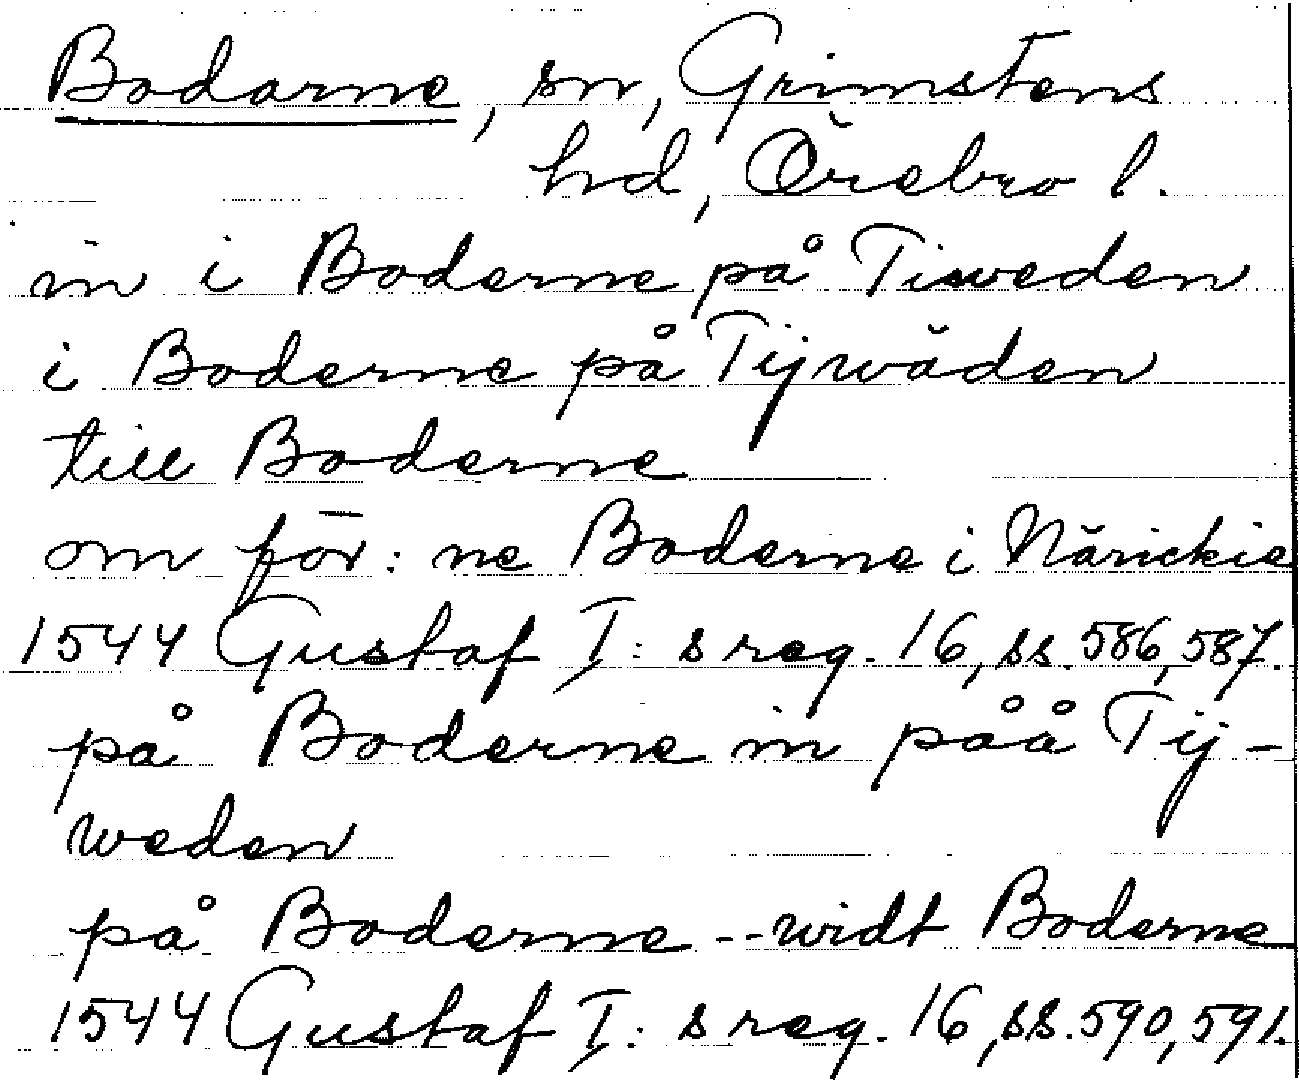 Bodarne, sn, Grimstens
hd, Örebro l.
in i Boderne på Tiweden
i Boderne på Tijwäden
till Boderne
om för: ne Boderne i Närickie
1544 Gustaf I: s reg. 16, ss. 586, 587.
på Boderne in påå Tij-
weden
på Boderne -- widt Boderne
1544 Gustaf I: s reg. 16, ss. 590, 591.